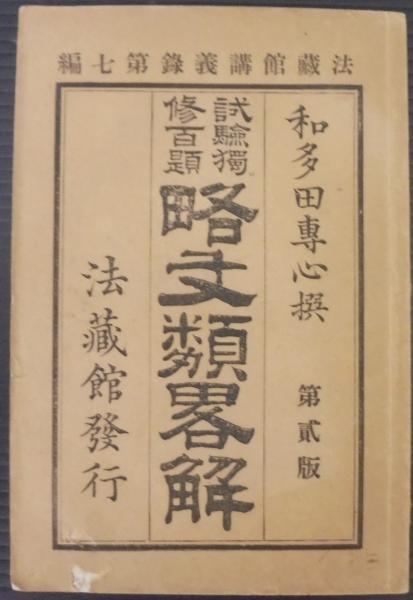 法藏館講義錄第七編
和多田專心撰
第貳版
試驗獨
修百題
略文類畧解
法藏館發行